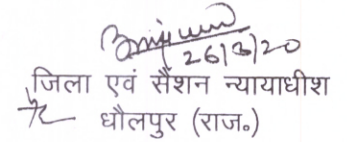 26/3/20
जिला एवं सैशन न्यायाधीश
धौलपुर (राज०)